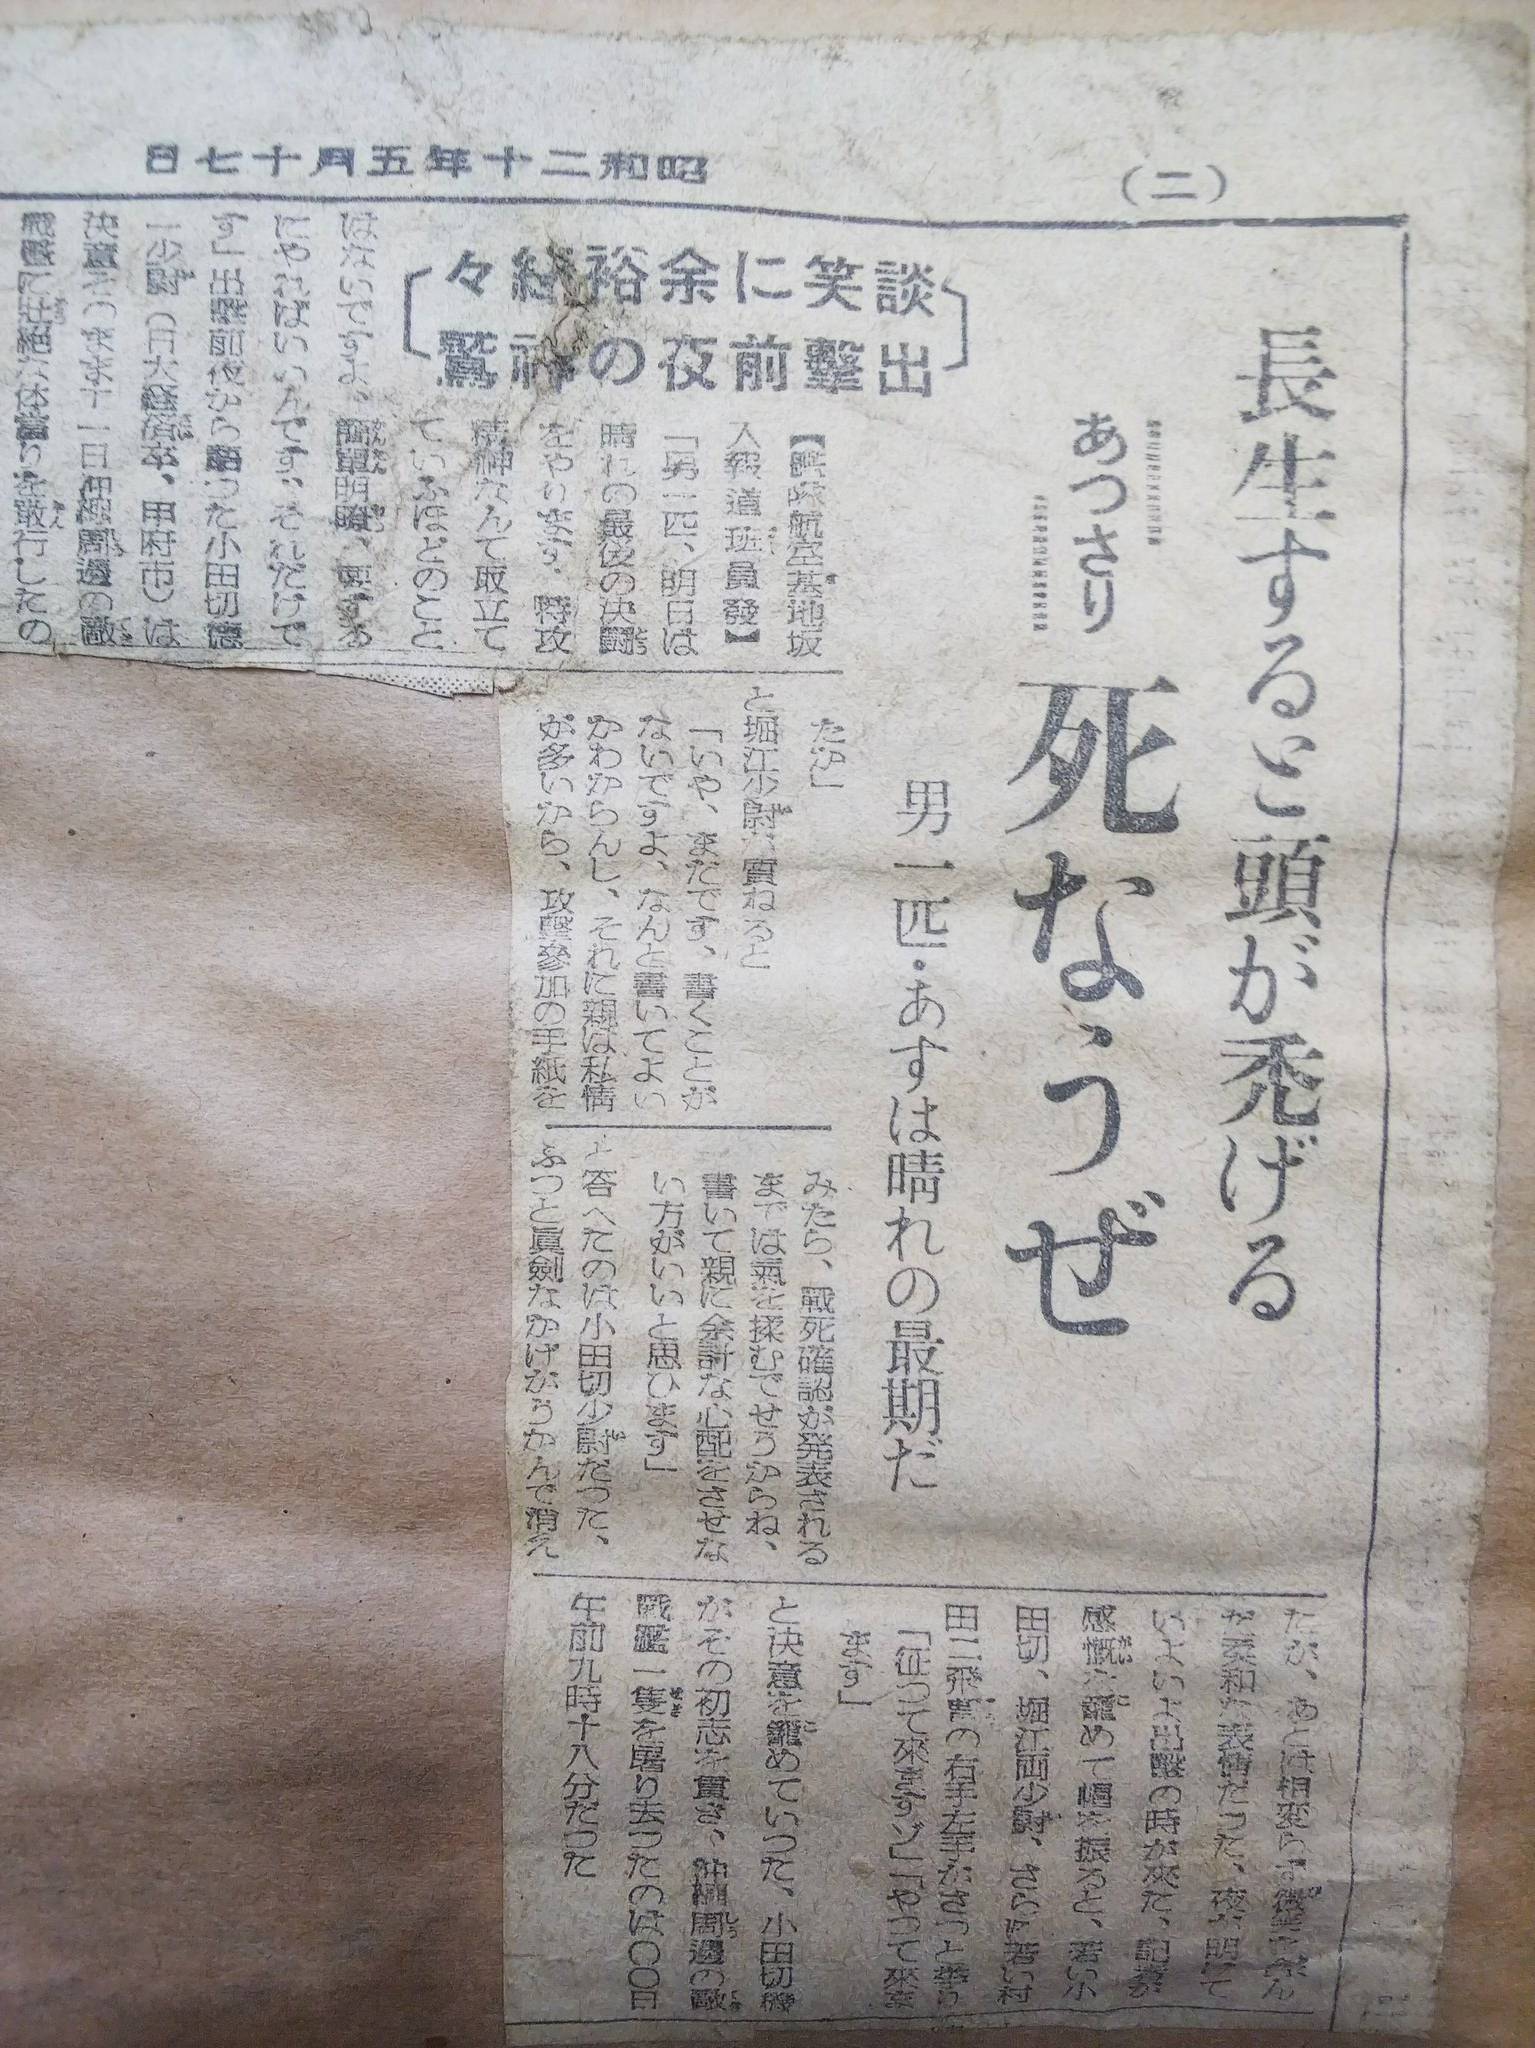 （二）
昭和二十年五月十七日
長生すると頭が禿げる
あつさり
死なうぜ
男一匹・あすは晴れの最期だ
談笑に余裕綽々
出擊前夜の神鷲
航空基地坂
入報道班員發】
「男一匹、明日は
晴れの最後の決鬪
をやります、特攻
精神なんて取立て
ていふほどのこと
はないですよ、簡單明瞭、要する
にやればいいんです、それだけで
す」出擊前夜から語つた小田切德
一少尉（日大経済卒、甲府市）は
決意そのまま十一日沖繩周邊の敵
戰艦に壯絶な体當りを敢行したの
たか」
と堀江少尉が質ねると
「いや、まだです、書くことが
ないですよ、なんと書いてよい
かわからんし、それに親は私情
が多いから、攻擊參加の手紙を
みたら、戰死確認が発表される
までは氣を揉むでせうからね、
書いて親に余計な心配をさせな
い方がいいと思ひます」
と答へたのは小田切少尉だつた、
ふつと眞劍なかげがうかんで消え
たが、あとは相変らず微笑を
だ柔和な表情だつた、夜が明けて
いよいよ出擊の時が來た、記者が
感慨を籠めて帽を振ると、若い小
田切、堀江両少尉、さらに若い村
田二飛曹の右手左手がさつと挙り
「征つて來ますゾ」「やつて來
ます」
と決意を籠めていつた、小田切機
がその初志を貫き、沖繩周邊の敵
戰艦一隻を屠り去つたのは〇〇日
午前九時十八分だつた